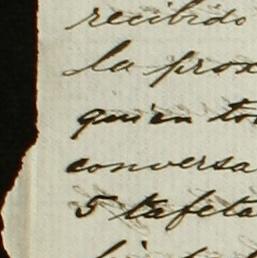 recibido
la prox
quien to
conversa
5 tafeta